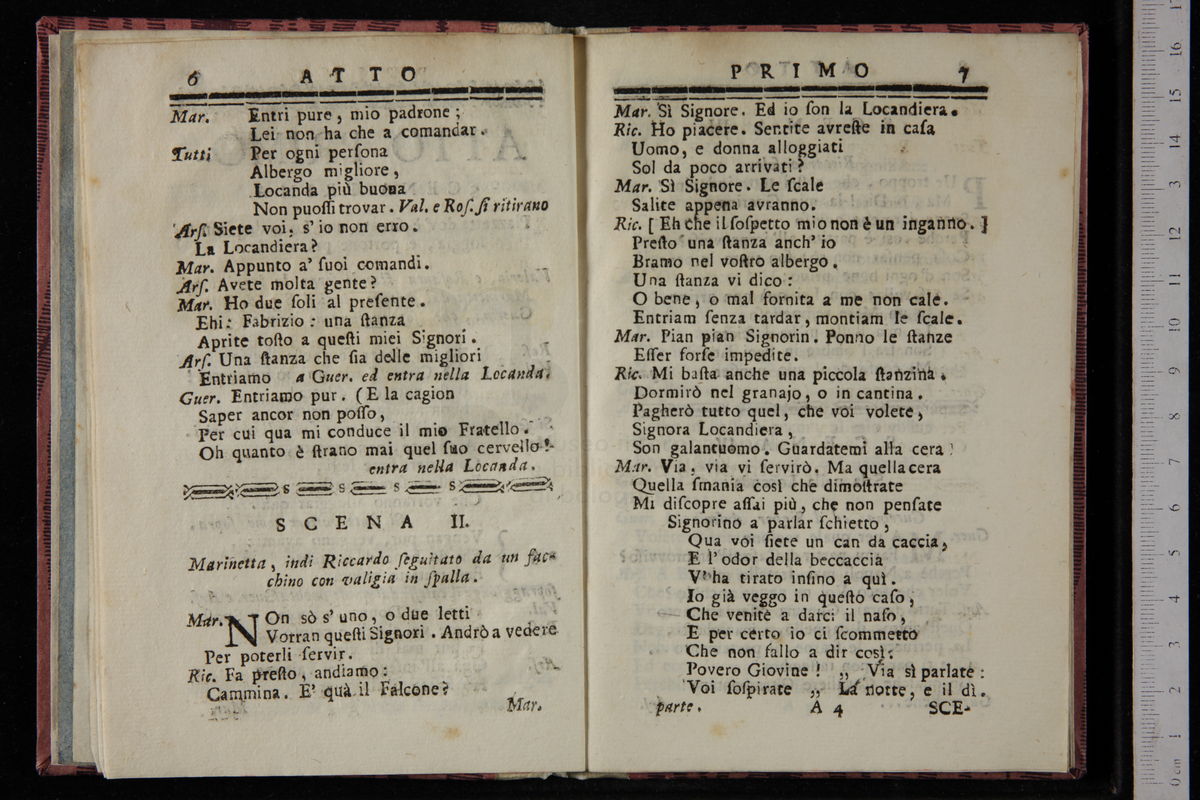 6 ATTO
Mar. Entri pure, mio padrone;
Lei non ha che a comandar.
Tutti Per ogni perſona
Albergo migliore,
Locanda più buona
Non puoſſi trovar. Val. e Roſ. ſi ritirano
Arſ. Siete voi, s' io non erro.
La Locandiera?
Mar. Appunto a' ſuoi comandi.
Arſ. Avete molta gente?
Mar. Ho due ſoli al preſente.
Ehi: Fabrizio: una ſtanza
Aprite toſto a queſti miei Signori.
Arſ. Una ſtanza che ſia delle migliori
Entriamo a Guer. ed entra nella Locanda.
Guer. Entriamo pur. (E la cagion
Saper ancor non poſſo,
Per cui qua mi conduce il mio Fratello.
Oh quanto è ſtrano mai quel ſuo cervello!
entra nella Locanda.
S S S S
SCENA II.
Marinetta, indi Riccardo ſeguitato da un fac-
chino con valigia in ſpalla.
Mar. NOn sò s' uno, o due letti
Vorran queſti Signori. Andrò a vedere
Per poterli ſervir.
Ric. Fa preſto, andiamo:
Cammina. E' quà il Falcone?
Mar.
PRIMO 7
Mar. Sì Signore. Ed io ſon la Locandiera.
Ric. Ho piacere. Sentite avreſte in caſa
Uomo, e donna alloggiati
Sol da poco arrivati?
Mar. Sì Signore. Le ſcale
Salite appena avranno.
Ric. [Eh che il ſoſpetto mio non è un inganno.]
Preſto una ſtanza anch' io
Bramo nel voſtro albergo.
Una ſtanza vi dico:
O bene, o mal fornita a me non cale.
Entriam ſenza tardar, montiam le ſcale.
Mar. Pian pian Signorin. Ponno le ſtanze
Eſſer forſe impedite.
Ric. Mi baſta anche una piccola ſtanzina.
Dormirò nel granajo, o in cantina.
Pagherò tutto quel, che voi volete,
Signora Locandiera,
Son galantuomo. Guardatemi alla cera!
Mar. Via, via vi ſervirò. Ma quella cera
Quella ſmania così che dimoſtrate
Mi diſcopre aſſai più, che non penſate
Signorino a parlar ſchietto,
Qua voi ſiete un can da caccia,
E l' odor della beccaccia
V' ha tirato inſino a quì.
Io già veggo in queſto caſo,
Che venite a darci il naſo,
E per certo io ci ſcommetto
Che non fallo a dir così:
Povero Giovine! „ Via sì parlate:
Voi ſoſpirate „ La notte, e il dì.
parte. A 4 SCE-